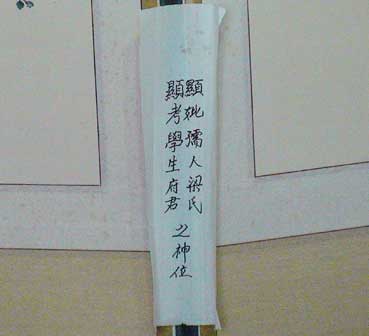 顯妣孺人梁氏
顯考學生府君
之神位